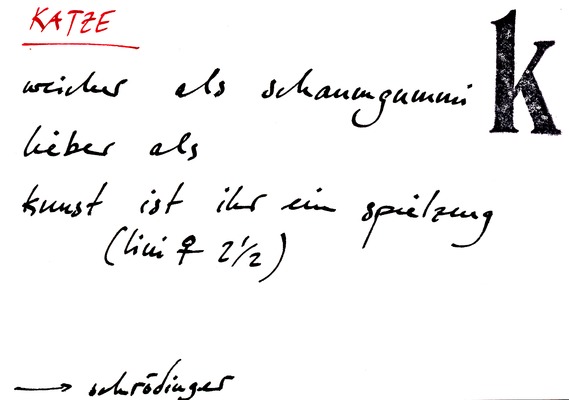 KATZE
k
weicher als schaumgummi
lieber als
kunst ist ihr ein spielzeug
(lini ♀ 2 1/2)
→ schrödinger